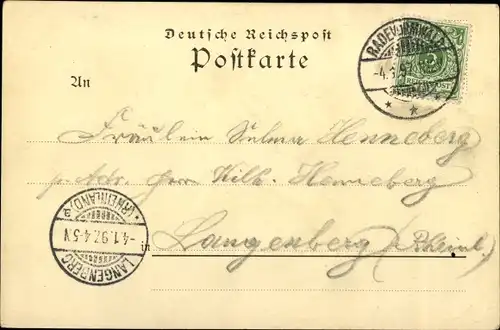 Deutsche Reichspost
Postkarte
An
RADEVORMWALD
-4.1.97
REICHSPOST
Fräulein Selma Henneberg
p. Adr. Herrn Wilh. Henneberg
in Langenberg (Rheinl.)
(RHEINLAND) a
-4.1.97. 4-5.N
LANGENBERG